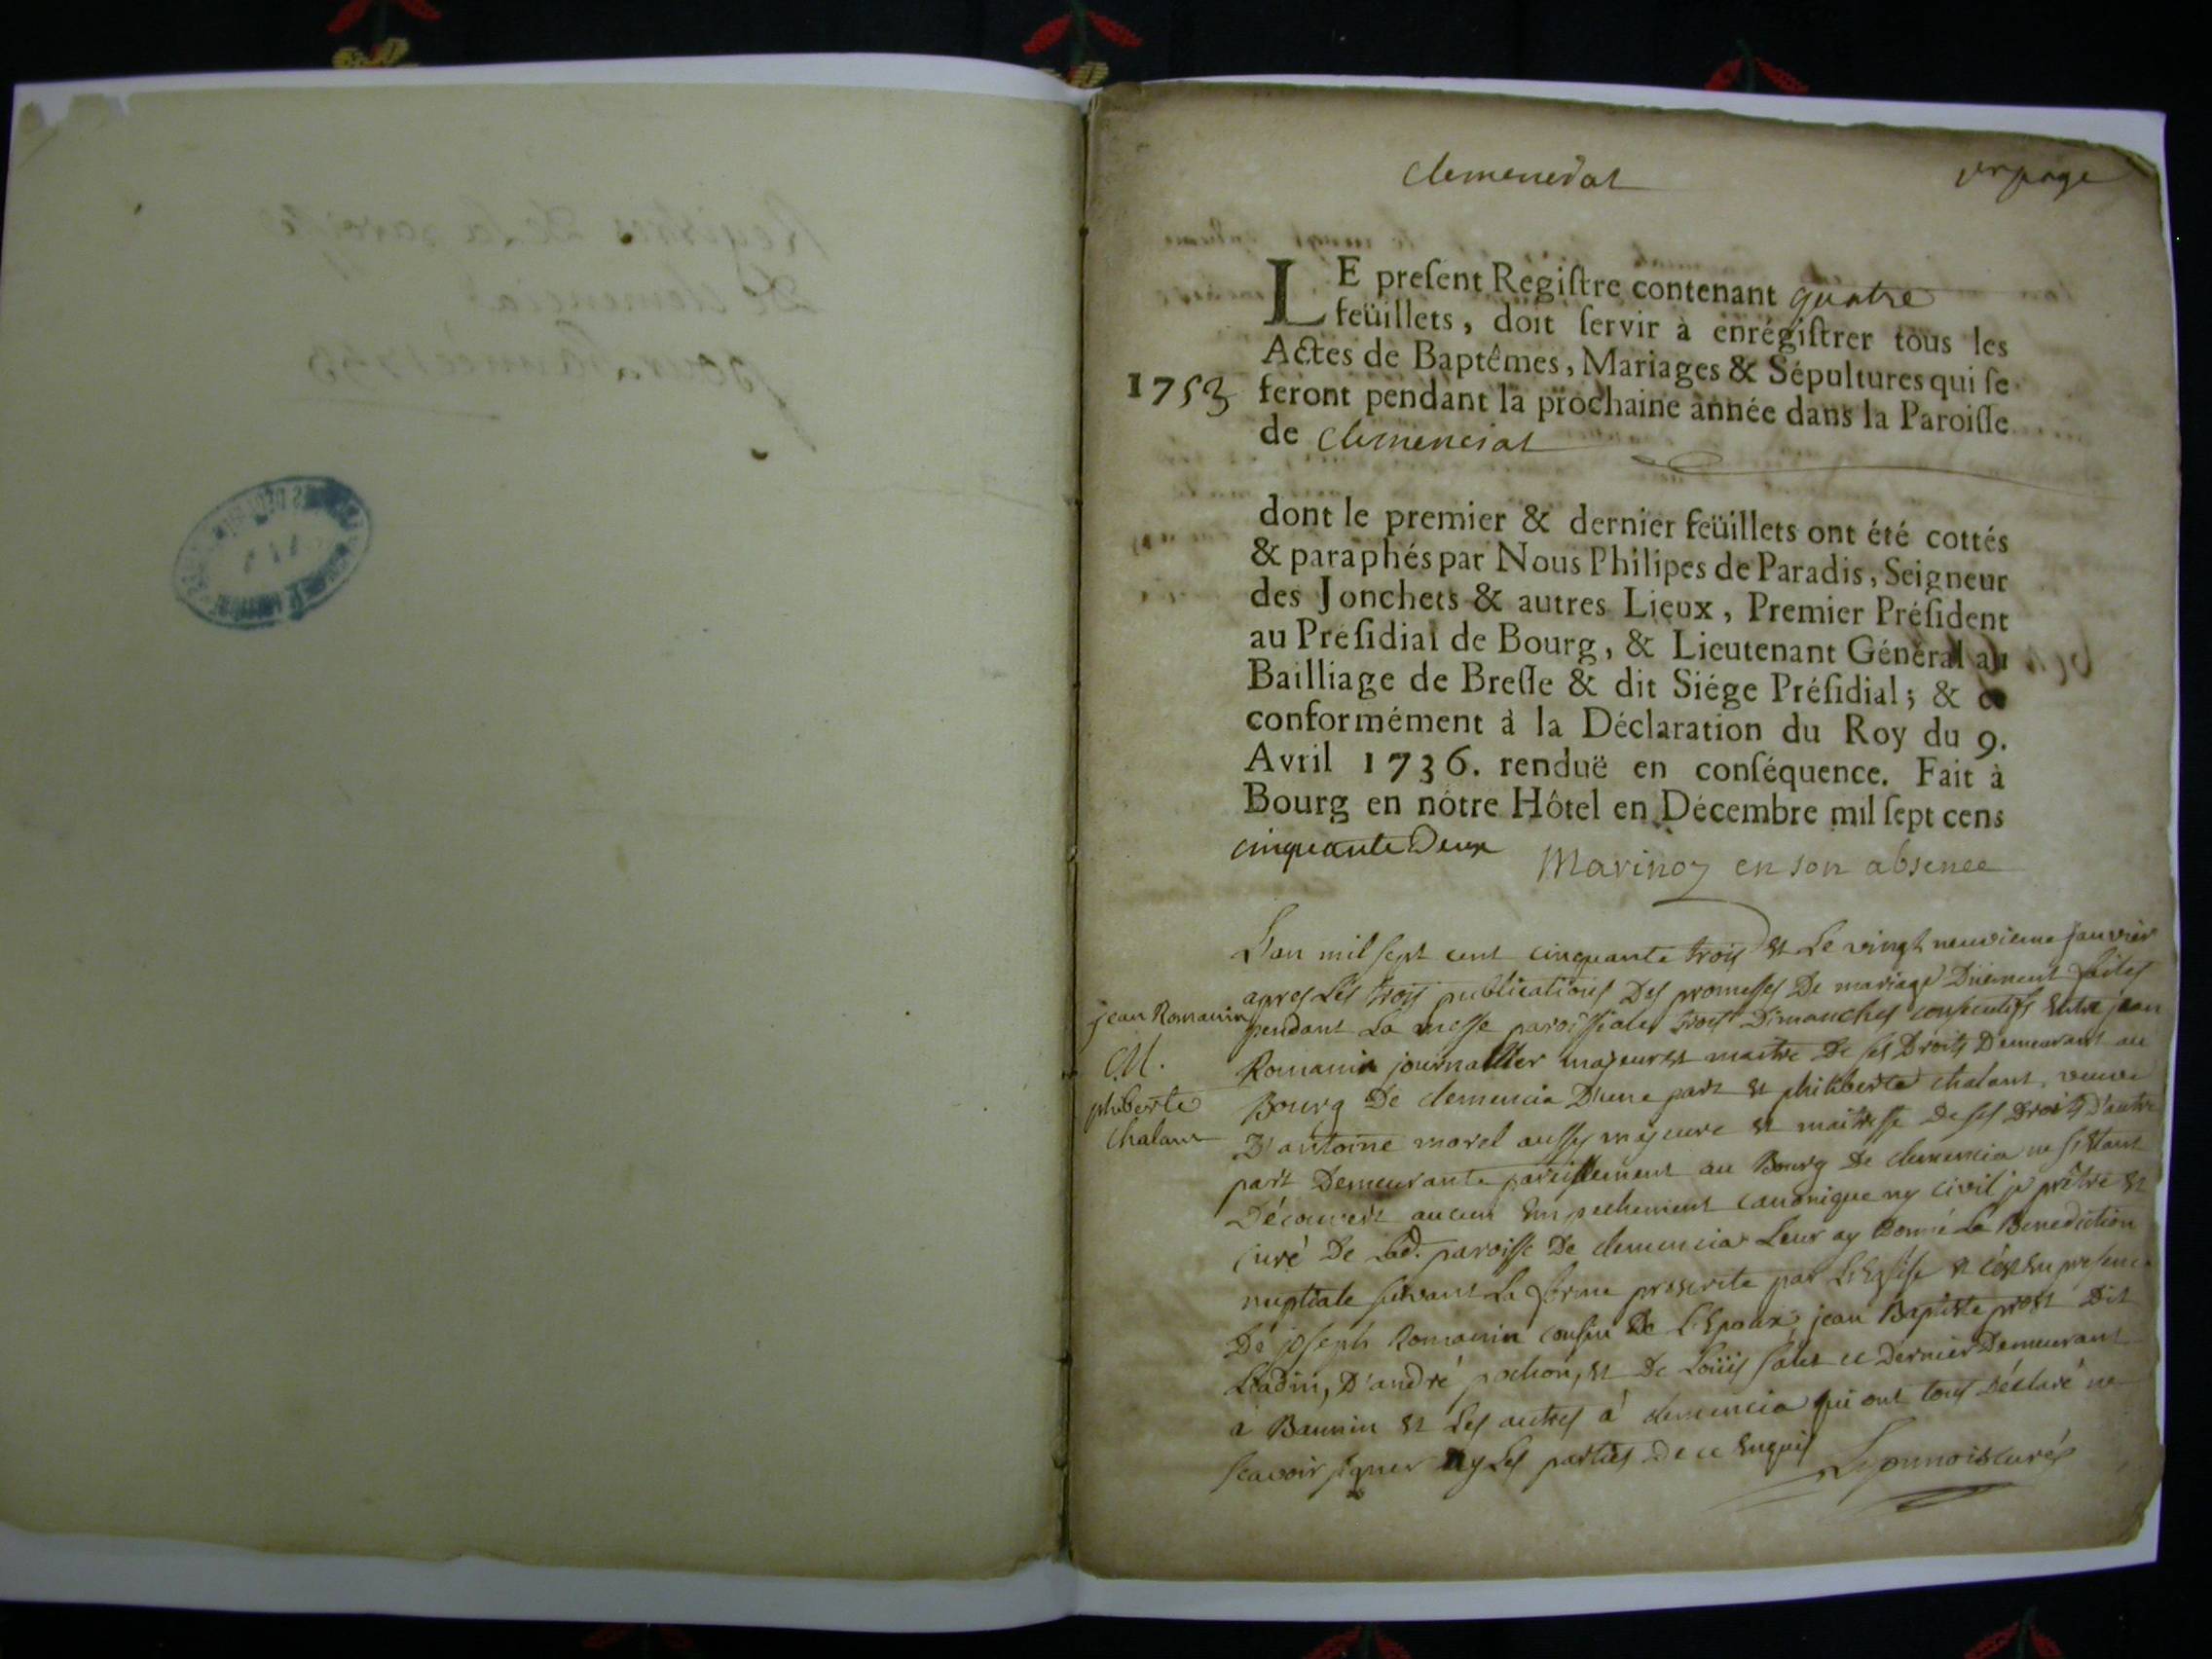 clemenciat
LE preſent Regiſtre contenant quatre
feüillets, doit ſervir à enrégiſtrer tous les
Actes de Baptêmes, Mariages & Sépultures qui ſe
1753 feront pendant la prochaine année dans la Paroiſſe
de clemenciat
dont le premier & dernier feüillets ont été cottés
& paraphés par Nous Philipes de Paradis, Seigneur
des Jonchets & autres Lieux, Premier Préſident
au Préſidial de Bourg, & Lieutenant Général au
Bailliage de Breſſe & dit Siége Préſidial; & ce
conformément à la Déclaration du Roy du 9.
Avril 1736. renduë en conſéquence. Fait à
Bourg en nôtre Hôtel en Décembre mil ſept cens
cinquante Deux
en son absence
L'an mil sept cent cinquante trois et Le vingt neuvieme janvier
apres Les trois publications Des promesses De mariage Duement faites
pendant La messe paroissiale trois Dimanches consecutifs Entre jean
Romanin journallier majeur et maitre De ses Droits Demeurant au
Bourg De clemencia D'une part et philiberte chalant veuve
D'antoine morel aussy majeure et maitresse De ses Droits D'autre
part Demeurante pareillement au Bourg De clemencia ne s'etant
Découvert aucun Empechement canonique ny civil je prêtre et
curé De Lad. paroisse De clemencia Leur ay Donné La Benediction
nuptiale suivant La forme prescrite par L'Eglise et ce En presence
De joseph Romanin cousin De L'Epoux, jean Baptiste prost Dit
Ladin, D'andré pochon, et De Loüis ce Dernier Demeurant
à Bannin et Les autres à clemencia qui ont tous Déclaré ne
scavoir signer ny Les parties De ce Enquis
jean Romanin
M.
philiberte
chalant